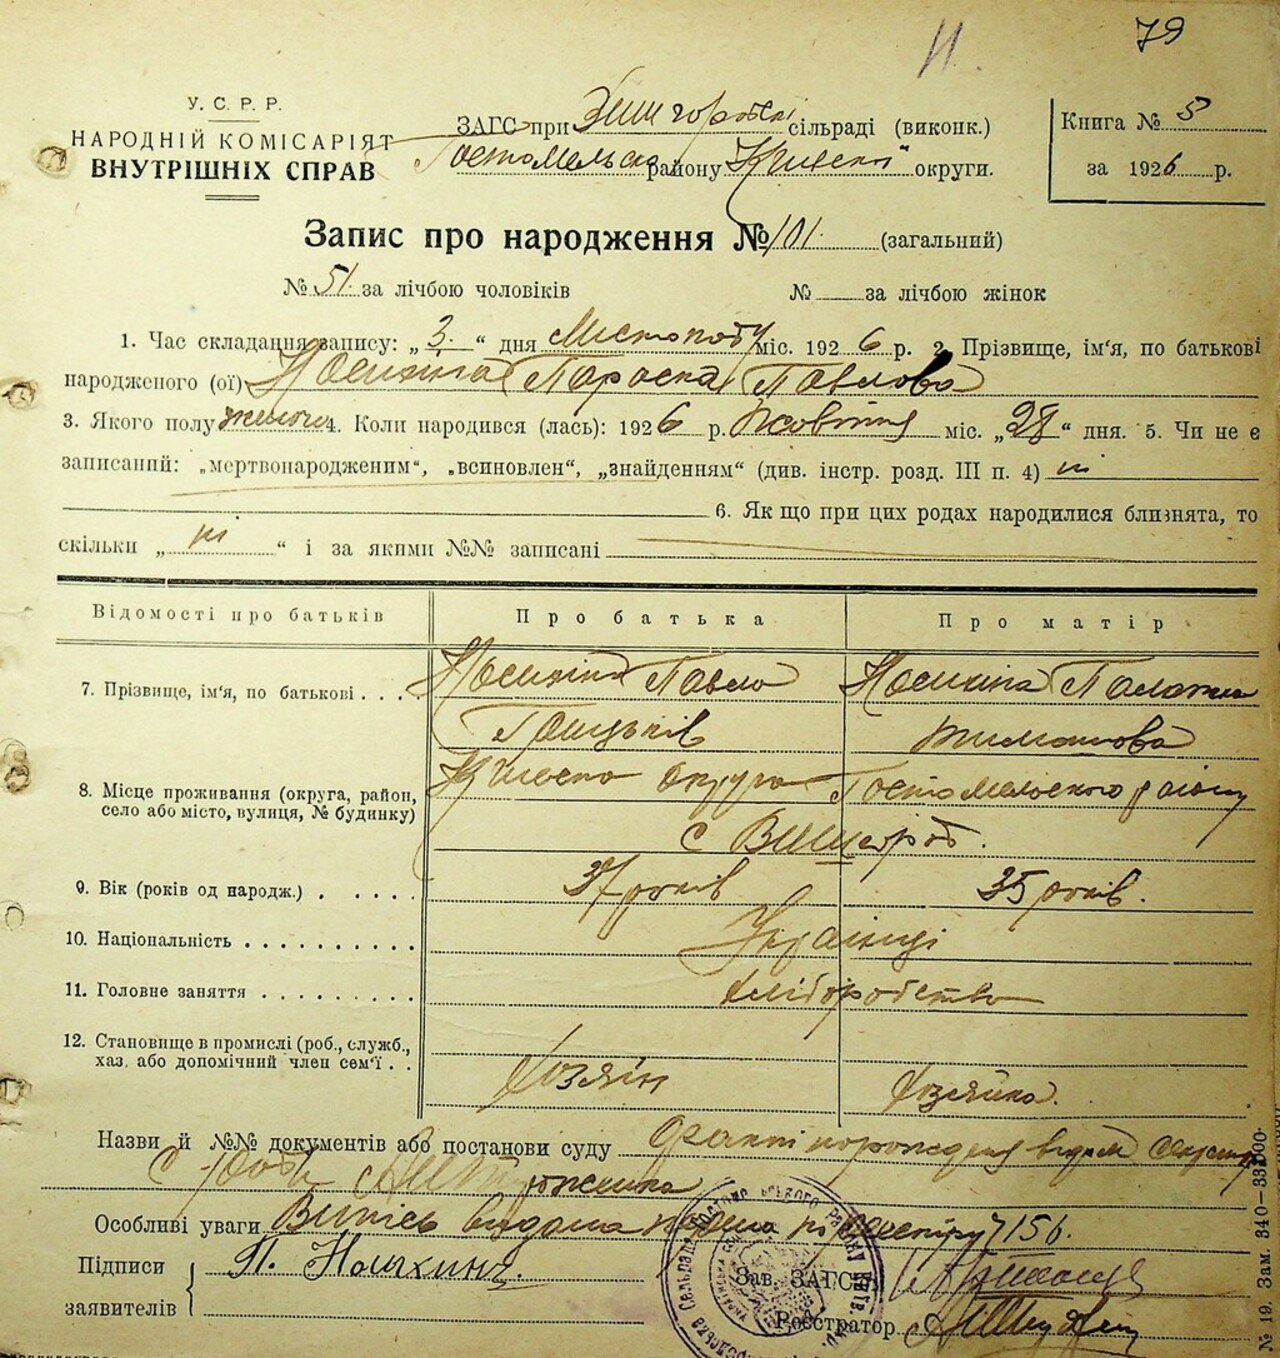 11.
79
У. С. Р. Р.
НАРОДНІЙ КОМІСАРІЯТ
ВНУТРІШНІХ СПРАВ
ЗАГС при сільраді (виконк.)
Гостомельско району Київскі округи.
Книга № 5
за 1926 р.
Запис про народження № 101. (загальний)
№ 51. за лічбою чоловіків № за лічбою жінок
1. Час складання запису: „3.“ дня Листопаду міс. 1926 р. 2. Прізвище, ім'я, по батькові
народженого (ої) Носихіна Параска Павлова
3. Якого полу 4. Коли народився (лась): 1926 р. Жовтня міс. „28“ дня. 5. Чи не є
записаний: „мертвонародженим“, „всиновлен“, „знайденням“ (див. інстр. розд. III п. 4) ні
6. Як що при цих родах народилися близнята, то
скільки „ ні “ і за якими №№ записані
Відомості про батьків Про батька Про матір
7. Прізвище, ім'я, по батькові . . . Носихін Павло Носихіна
Грицьків Тимошова
8. Місце проживання (округа, район, Київска округа Гостомельского району
село або місто, вулиця, № будинку) с Вишгород.
9. Вік (років од народж.) . . . . . 37 років 35 років.
10. Національність . . . . . . . . . . Українці
11. Головне заняття . . . . . . . . . хліборобство
12. Становище в промислі (роб., служб.,
хаз. або допомічний член сем'ї . . Хозяін Хозяйка.
Назви й №№ документів або постанови суду видана
с
Особливі уваги. Випісь видана по реєстру 156.
Підписи П. Носихинъ. Зав. ЗАГС'у
заявителів Реєстратор
№ 19. Зам. 340—33200.